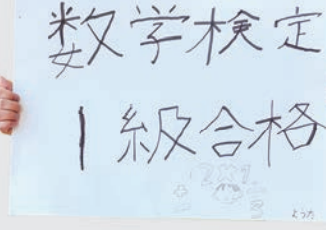 数学検定
1級合格